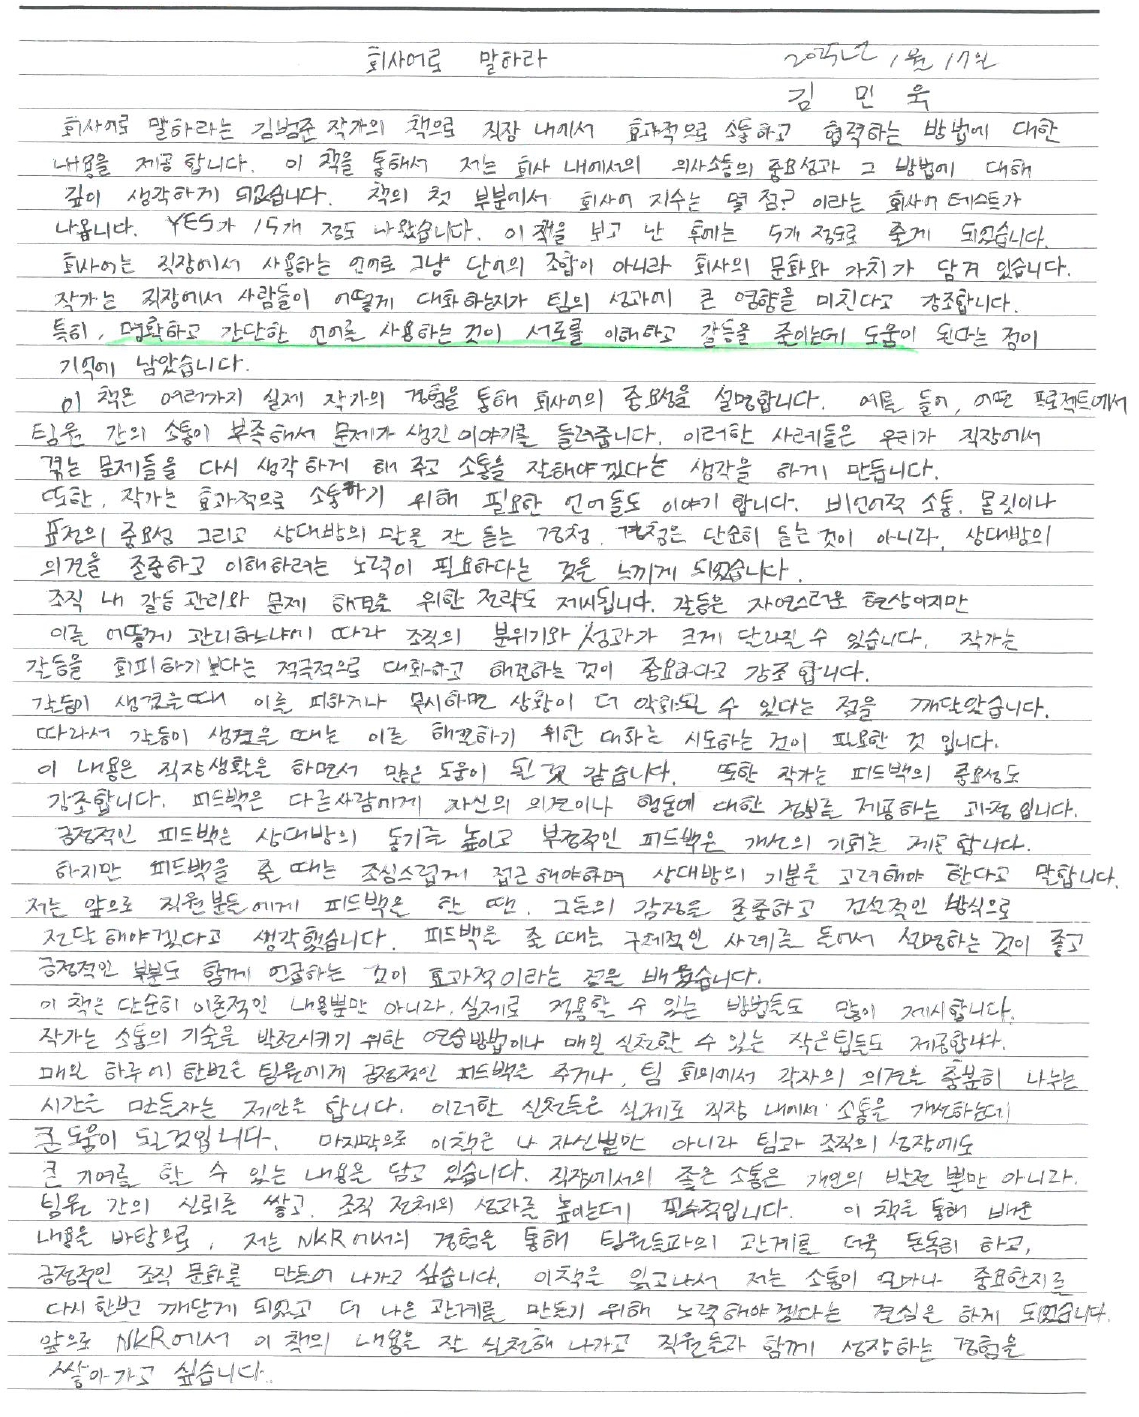 회사어로 말하라 2025년 1월 17일
김 민 욱
회사어로 말하라는 김범준 작가의 책으로 직장 내에서 효과적으로 소통하고 협력하는 방법에 대한
내용을 제공 합니다. 이 책을 통해서 저는 회사 내에서의 의사소통의 중요성과 그 방법에 대해
깊이 생각하게 되었습니다. 책의 첫 부분에서 회사어 지수는 몇 점? 이라는 회사어 테스트가
나옵니다. YES가 15개 정도 나왔습니다. 이 책을 보고 난 후에는 5개 정도로 줄게 되었습니다.
회사어는 직장에서 사용하는 언어로 그냥 단어의 조합이 아니라 회사의 문화와 가치가 담겨 있습니다.
작가는 직장에서 사람들이 어떻게 대화하는지가 팀의 성과에 큰 영향을 미친다고 강조합니다.
특히, 명확하고 간단한 언어를 사용하는 것이 서로를 이해하고 갈등을 줄이는데 도움이 된다는 점이
기억에 남았습니다.
이 책은 여러가지 실제 작가의 경험을 통해 회사어의 중요성을 설명합니다. 예를 들어, 어떤 프로젝트에서
팀원 간의 소통이 부족해서 문제가 생긴 이야기를 들려줍니다. 이러한 사례들은 우리가 직장에서
겪는 문제들을 다시 생각하게 해 주고 소통을 잘해야겠다는 생각을 하게 만듭니다.
또한, 작가는 효과적으로 소통하기 위해 필요한 언어들도 이야기 합니다. 비언어적 소통, 몸짓이나
표정의 중요성 그리고 상대방의 말을 잘 듣는 경청. 경청은 단순히 듣는 것이 아니라, 상대방의
의견을 존중하고 이해하려는 노력이 필요하다는 것을 느끼게 되었습니다.
조직 내 갈등 관리와 문제 해결을 위한 전략도 제시됩니다. 갈등은 자연스러운 현상이지만
이를 어떻게 관리하느냐에 따라 조직의 분위기와 성과가 크게 달라질 수 있습니다. 작가는
갈등을 회피하기 보다는 적극적으로 대화하고 해결하는 것이 중요하다고 강조 합니다.
갈등이 생겼을때 이를 피하거나 무시하면 상황이 더 악화될 수 있다는 점을 깨달았습니다.
따라서 갈등이 생겼을 때는 이를 해결하기 위한 대화를 시도하는 것이 필요한 것 입니다.
이 내용은 직장생활을 하면서 많은 도움이 될 것 같습니다. 또한 작가는 피드백의 중요성도
강조합니다. 피드백은 다른사람에게 자신의 의견이나 행동에 대한 정보를 제공하는 과정 입니다.
긍정적인 피드백은 상대방의 동기를 높이고 부정적인 피드백은 개선의 기회를 제공 합니다.
하지만 피드백을 줄 때는 조심스럽게 접근해야하며 상대방의 기분을 고려해야 한다고 말합니다.
저는 앞으로 직원분들에게 피드백을 할 땐, 그들의 감정을 존중하고 건설적인 방식으로
전달해야겠다고 생각했습니다. 피드백을 줄 때는 구체적인 사례를 들어서 설명하는 것이 좋고
긍정적인 부분도 함께 언급하는 것이 효과적이라는 점을 배웠습니다.
이 책은 단순히 이론적인 내용뿐만 아니라, 실제로 적용할 수 있는 방법들도 많이 제시합니다.
작가는 소통의 기술을 발전시키기 위한 연습방법이나 매일 실천할 수 있는 작은팁들도 제공합니다.
매일 하루에 한번은 팀원에게 긍정적인 피드백을 주거나, 팀 회의에서 각자의 의견을 충분히 나누는
시간을 만들자는 제안을 합니다. 이러한 실천들은 실제로 직장 내에서 소통을 개선하는데
큰 도움이 될 것입니다. 마지막으로 이책은 나 자신뿐만 아니라 팀과 조직의 성장에도
큰 기여를 할 수 있는 내용을 담고 있습니다. 직장에서의 좋은 소통은 개인의 발전 뿐만 아니라.
팀원 간의 신뢰를 쌓고, 조직 전체의 성과를 높이는데 필수적입니다. 이 책을 통해 배운
내용을 바탕으로, 저는 NKR에서의 경험을 통해 팀원들과의 관계를 더욱 돈독히 하고,
긍정적인 조직 문화를 만들어 나가고 싶습니다. 이책을 읽고나서 저는 소통이 얼마나 중요한지를
다시 한번 깨닫게 되었고 더 나은 관계를 만들기 위해 노력해야 겠다는 결심을 하게 되었습니다.
앞으로 NKR에서 이 책의 내용을 잘 실천해 나가고 직원들과 함께 성장하는 경험을
쌓아가고 싶습니다.